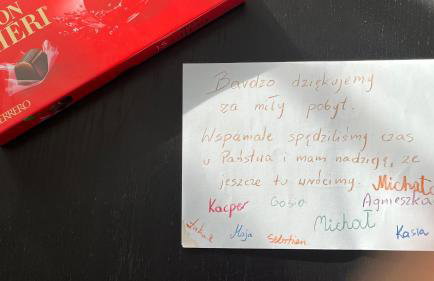 ON
IERI
FERRERO
Bardzo dziękujemy
za miły pobyt.
Wspaniale spędziliśmy czas
u Państwa i mam nadzieję, że
jeszcze tu wrócimy.
Kacper Gosia Agnieszka
Maja Sebastian Michał Kasia